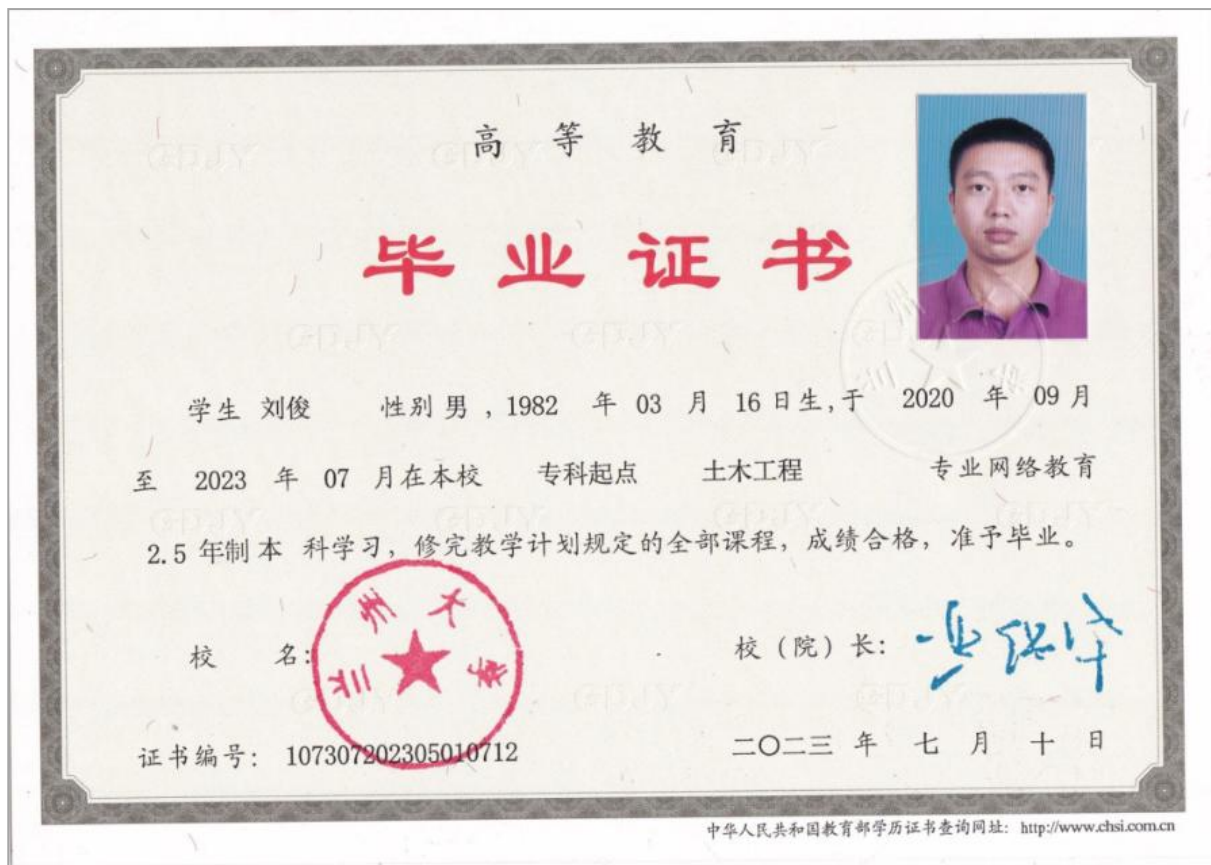 高等教育
毕业证书
学生 刘俊 性别 男 , 1982 年 03 月 16 日生,于 2020 年 09 月
至 2023 年 07 月在本校 专科起点 土木工程 专业网络教育
2.5 年制 本 科学习，修完教学计划规定的全部课程，成绩合格，准予毕业。
校 名：
兰州大学
校（院）长：
证书编号： 107307202305010712
二〇二三 年 七 月 十 日
中华人民共和国教育部学历证书查询网址： http://www.chsi.com.cn
GDJY